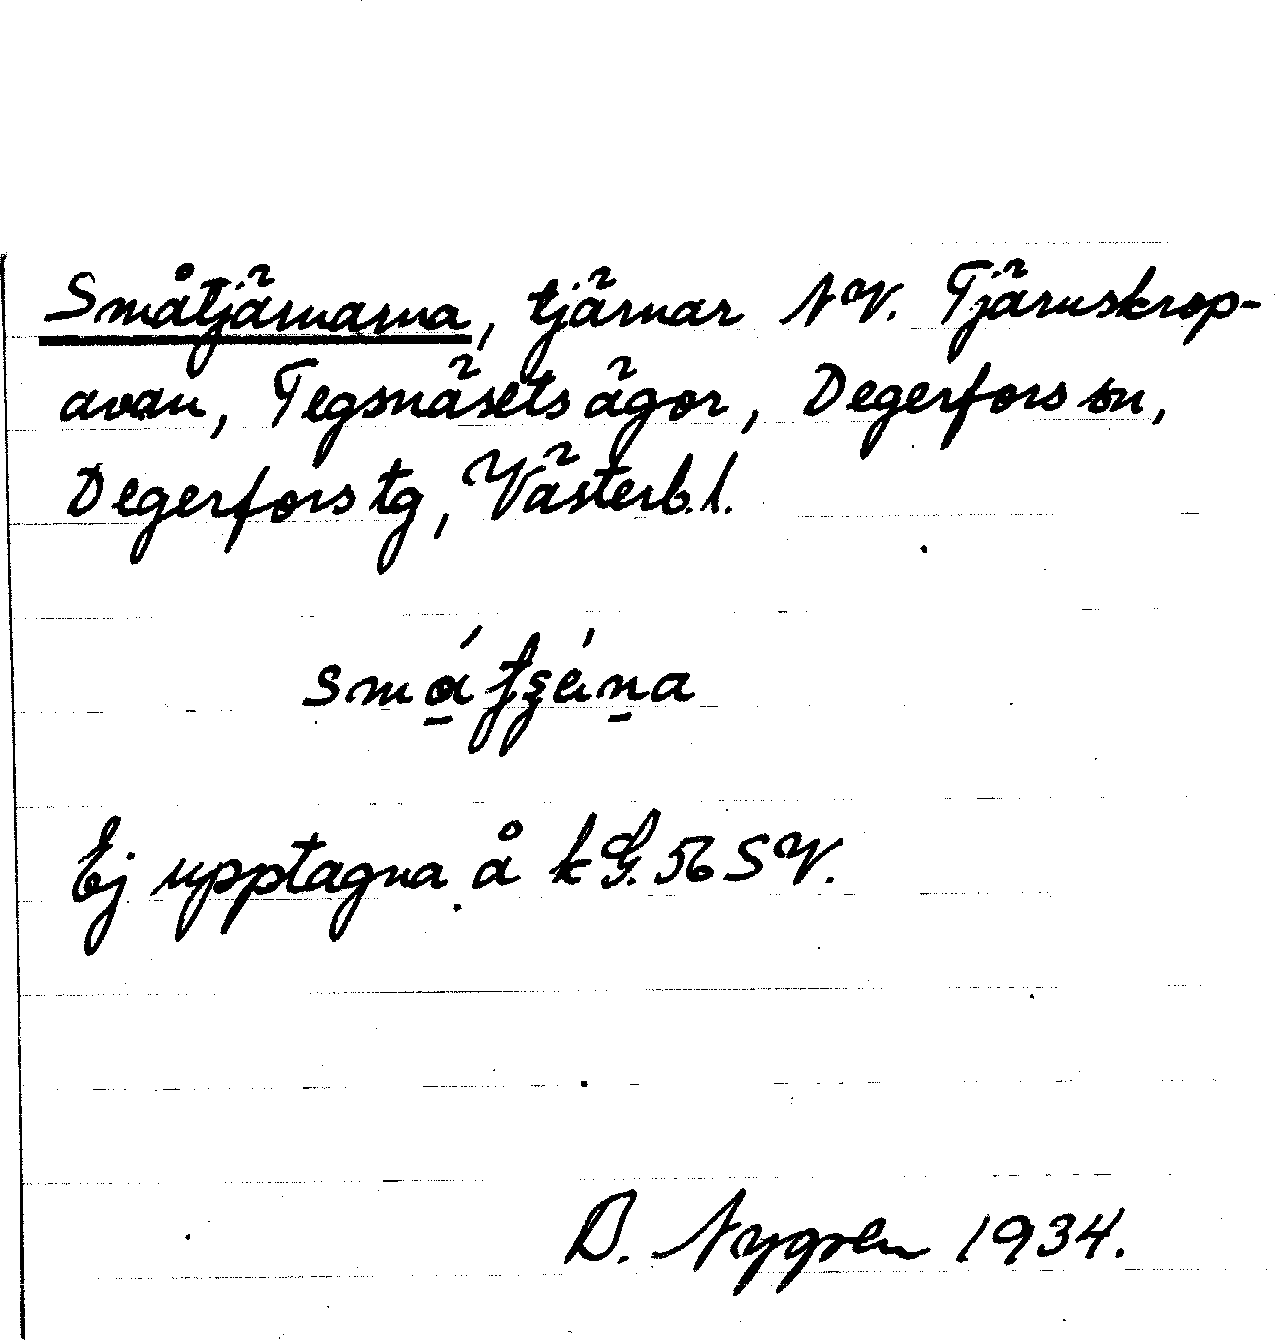 Småtjärnarna, tjärnar NV. Tjärnskrop-
avan, Tegsnäsets ägor, Degerfors sn,
Degerfors tg, Västerb. l.
Ej upptagna å kG. 56 SV.
B. Nygren 1934.